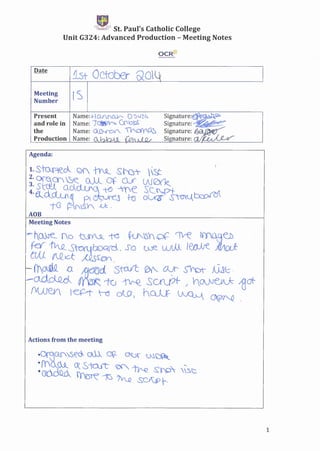 St. Paul's Catholic College
Unit G324: Advanced Production – Meeting Notes
OCR
Date
1st October 2014
Meeting Number
15
Present and role in the Production
Name: Hannah Signature:
Name: Signature:
Name: Thomas Signature:
Name: Signature:
Agenda:
1. Started on the shot list
2. organise all of our work
3. Start adding to the script
4. adding pictures to our storyboard
to finish it.
AOB
Meeting Notes
- have no time to finish of the images
for the storyboard, so we will leave that
till next lesson.
- made a good start on our shot list.
- added more to the script, haven't got
much left to do, half way done.
Actions from the meeting
• organised all of our work
• made a start on the shot list
• added more to the script
1